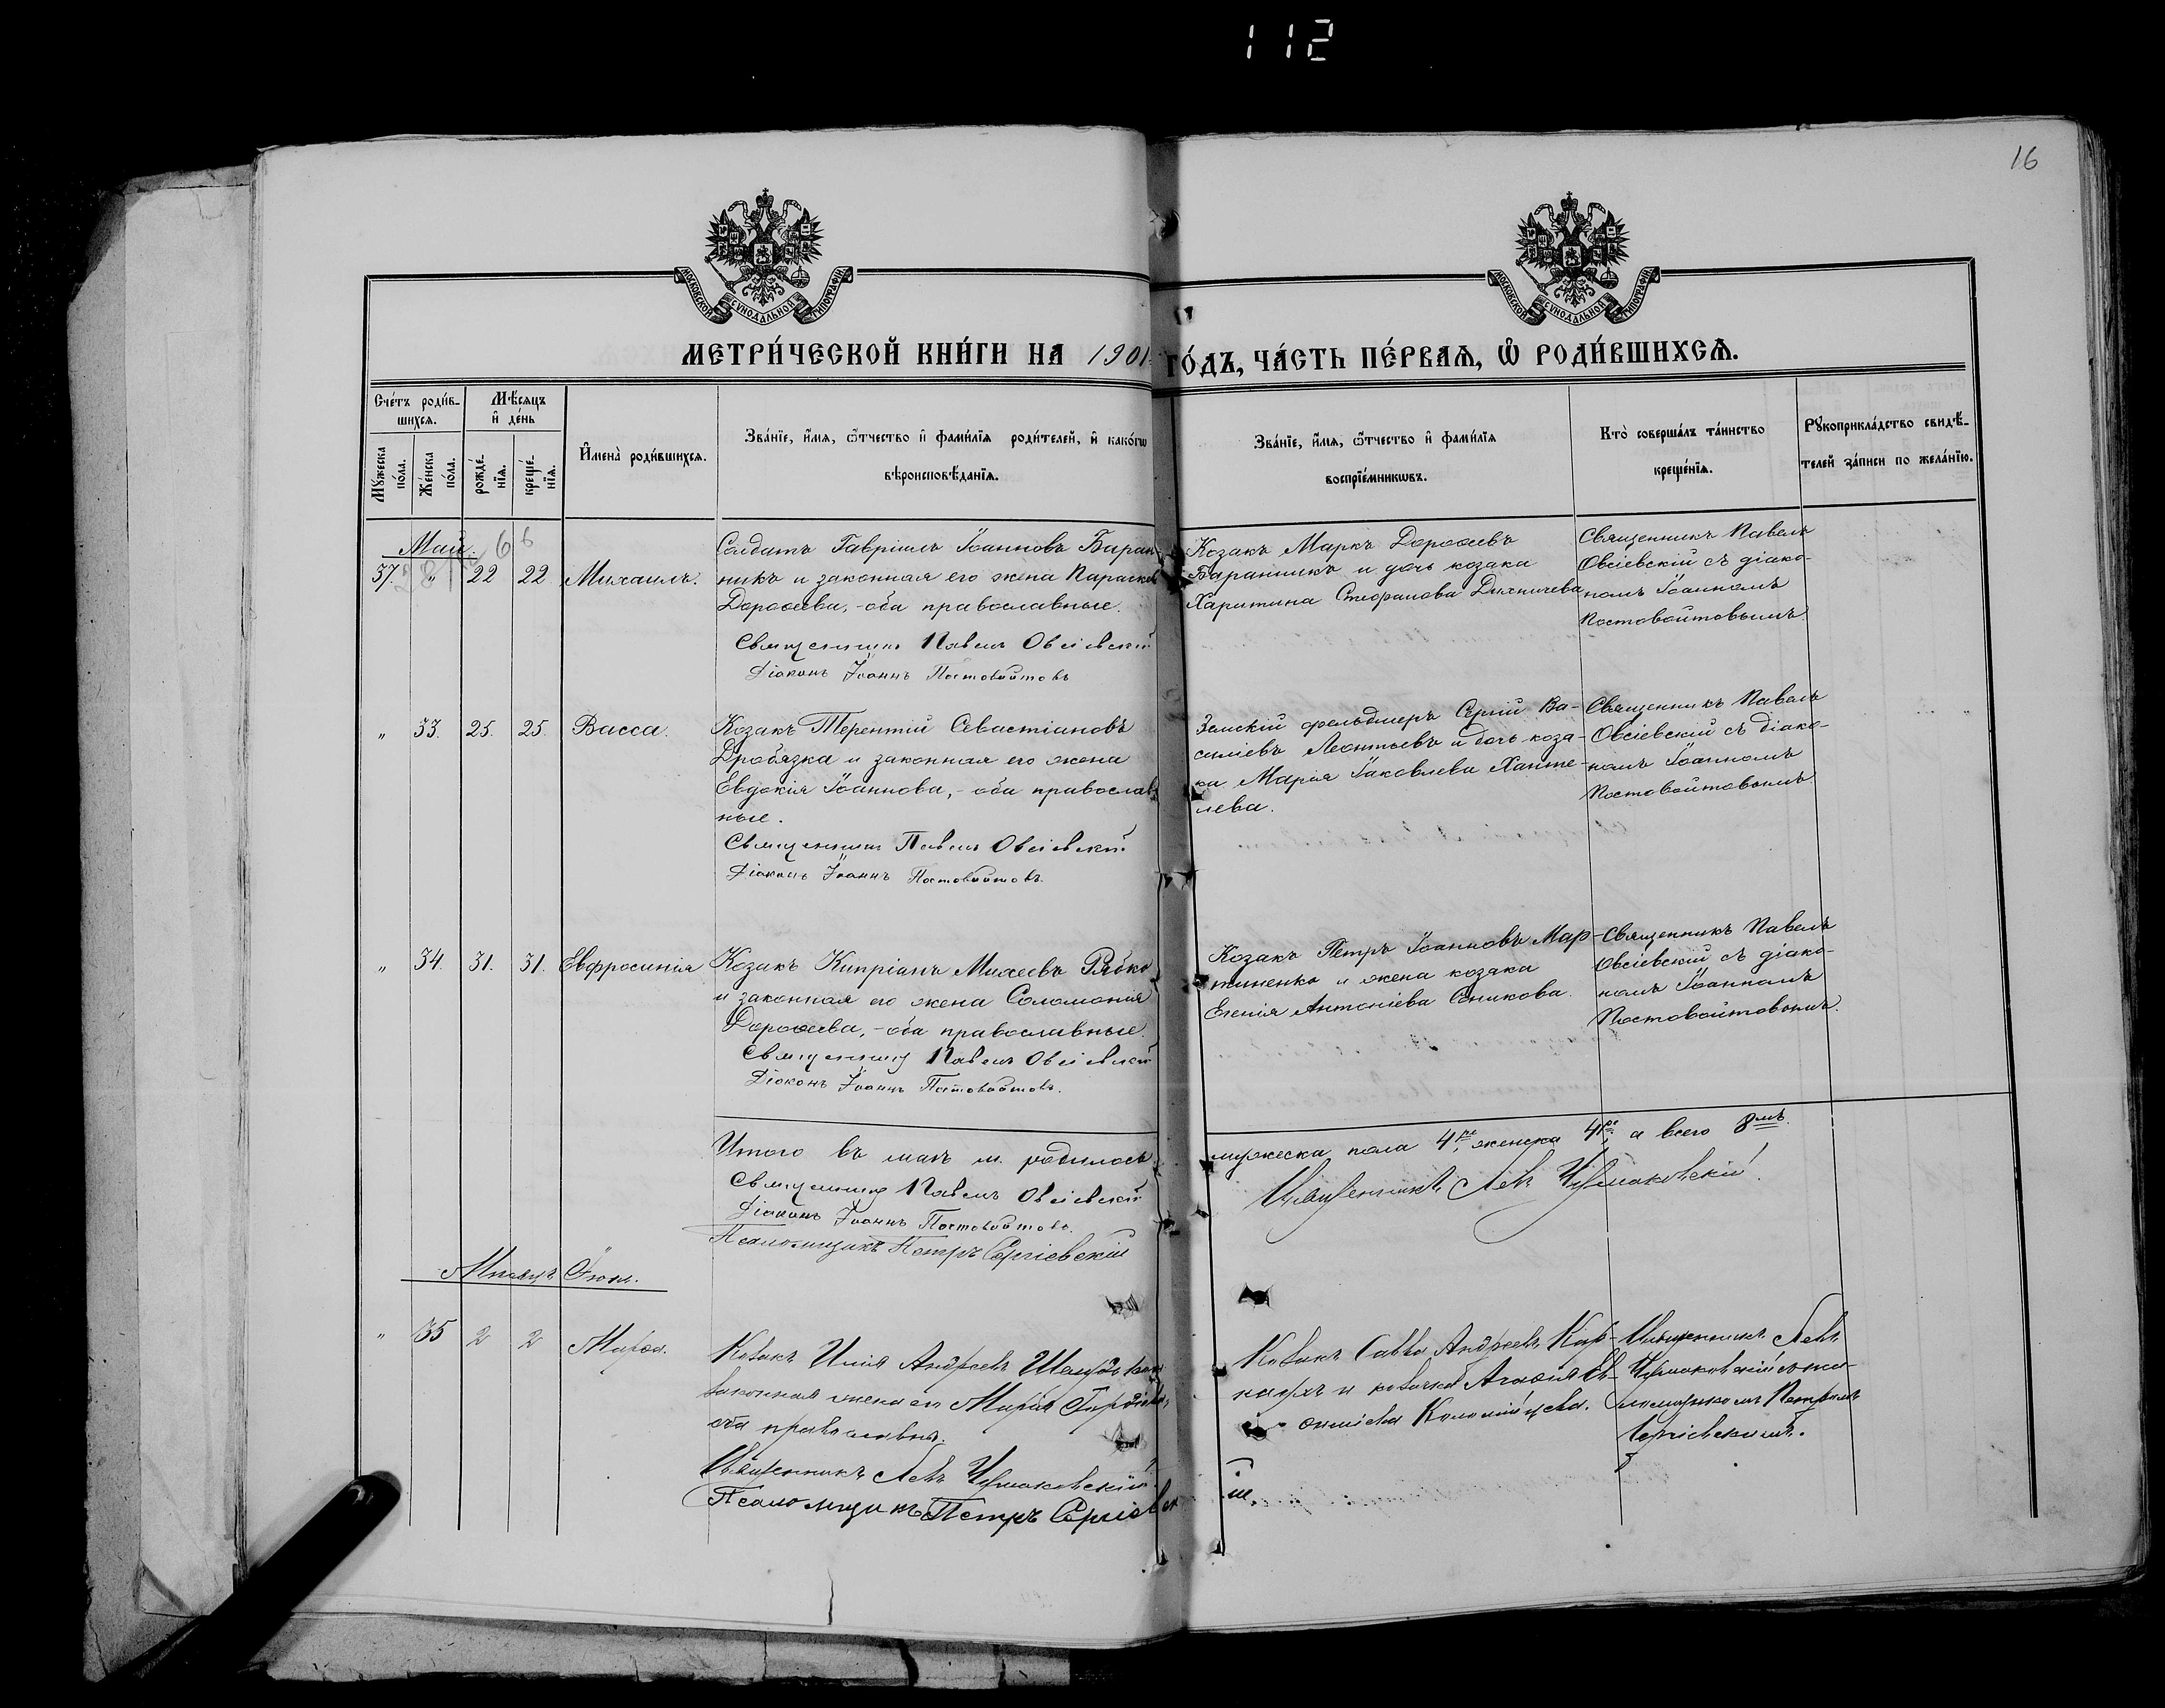 112
16
МОСКОВСКОЙ СУНОДАЛЬНОЙ ТИПОГРАФІИ
МОСКОВСКОЙ СУНОДАЛЬНОЙ ТИПОГРАФІИ
МЕТРИ́ЧЕСКОЙ КНИ́ГИ НА 1901 ГО́ДЪ, ЧА́СТЬ ПЕ́РВАѦ, Ѽ РОДИ́ВШИХСѦ.
Сче́тъ роди́в-
шихсѧ.
Мꙋжеска по́ла.
Же́нска по́ла.
Мѣ́сѧцъ
и҆ де́нь
рожде́-
нїѧ.
креще́-
нїѧ.
И҆мена̀ роди́вшихсѧ.
Зва́нїе, и҆́мѧ, ѻ҆́тчество и҆ фами́лїѧ роди́телей, и҆ како́гѡ
вѣроисповѣ́данїѧ.
Зва́нїе, и҆́мѧ, ѻ҆́тчество и҆ фами́лїѧ
воспрїе́мникѡвъ.
Кто̀ соверша́лъ та́инство
креще́нїѧ.
Рꙋкоприкла́дство свидѣ́-
телей за́писи по жела́нїю.
Май. 6 6
37. " 22 22 Михаилъ.
Солдатъ Гавріилъ Іоанновъ Баран-
никъ и законная его жена Параскева
Дорофеева, - оба православные.
Священникъ Павелъ Овсіевскій
Діаконъ Іоаннъ Постовойтовъ
Козакъ Маркъ Дорофеевъ
Баранникъ и дочь козака
Харитина Стефанова
Священникъ Павелъ
Овсіевскій съ діако-
номъ Іоанномъ
Постовойтовымъ.
" 33. 25. 25. Васса.
Козакъ Терентій Севастіановъ
Дробязка и законная его жена
Евдокія Іоаннова, - оба православ-
ные.
Священникъ Павелъ Овсіевскій
Діаконъ Іоаннъ Постовойтовъ.
Земскій фельдшеръ Сергій Ва-
силіевъ Леонтьевъ и дочь коза-
ка Марія Іаковлева Ханте-
лева.
Священникъ Павелъ
Овсіевскій съ діако-
номъ Іоанномъ
Постовойтовымъ.
" 34. 31. 31. Евфросинія
Козакъ Кипріанъ Михеевъ Рябко
и законная его жена Соломонія
Дорофеева, - оба православные.
Священникъ Павелъ Овсіевскій
Діаконъ Іоаннъ Постовойтовъ.
Козакъ Петръ Іоанновъ Мар-
тиненко и жена козака
Антоніева Сеникова.
Священникъ Павелъ
Овсіевскій съ діако-
номъ Іоанномъ
Постовойтовымъ.
Итого въ маѣ м. родилось
мужеска пола 4ре, женска 4ре, а всего 8мь.
Священникъ Павелъ Овсіевскій
Діаконъ Іоаннъ Постовойтовъ.
Псаломщикъ Петръ Сергіевскій
Священникъ Левъ Чермаковскій
Мѣсяцъ Іюнь.
" 35 2 2 Марѳа.
Козакъ Илія Андреевъ
законная жена его Марія
оба православны.
Священникъ Левъ Чермаковскій.
Псаломщикъ Петръ Сергіевскій
Козакъ Савва Андреевъ Кар-
наухъ и козачка Агафія Ев-
фиміева Коломійцева.
Священникъ Левъ
Чермаковскій съ пса-
ломщикомъ Петромъ
Сергіевскимъ.